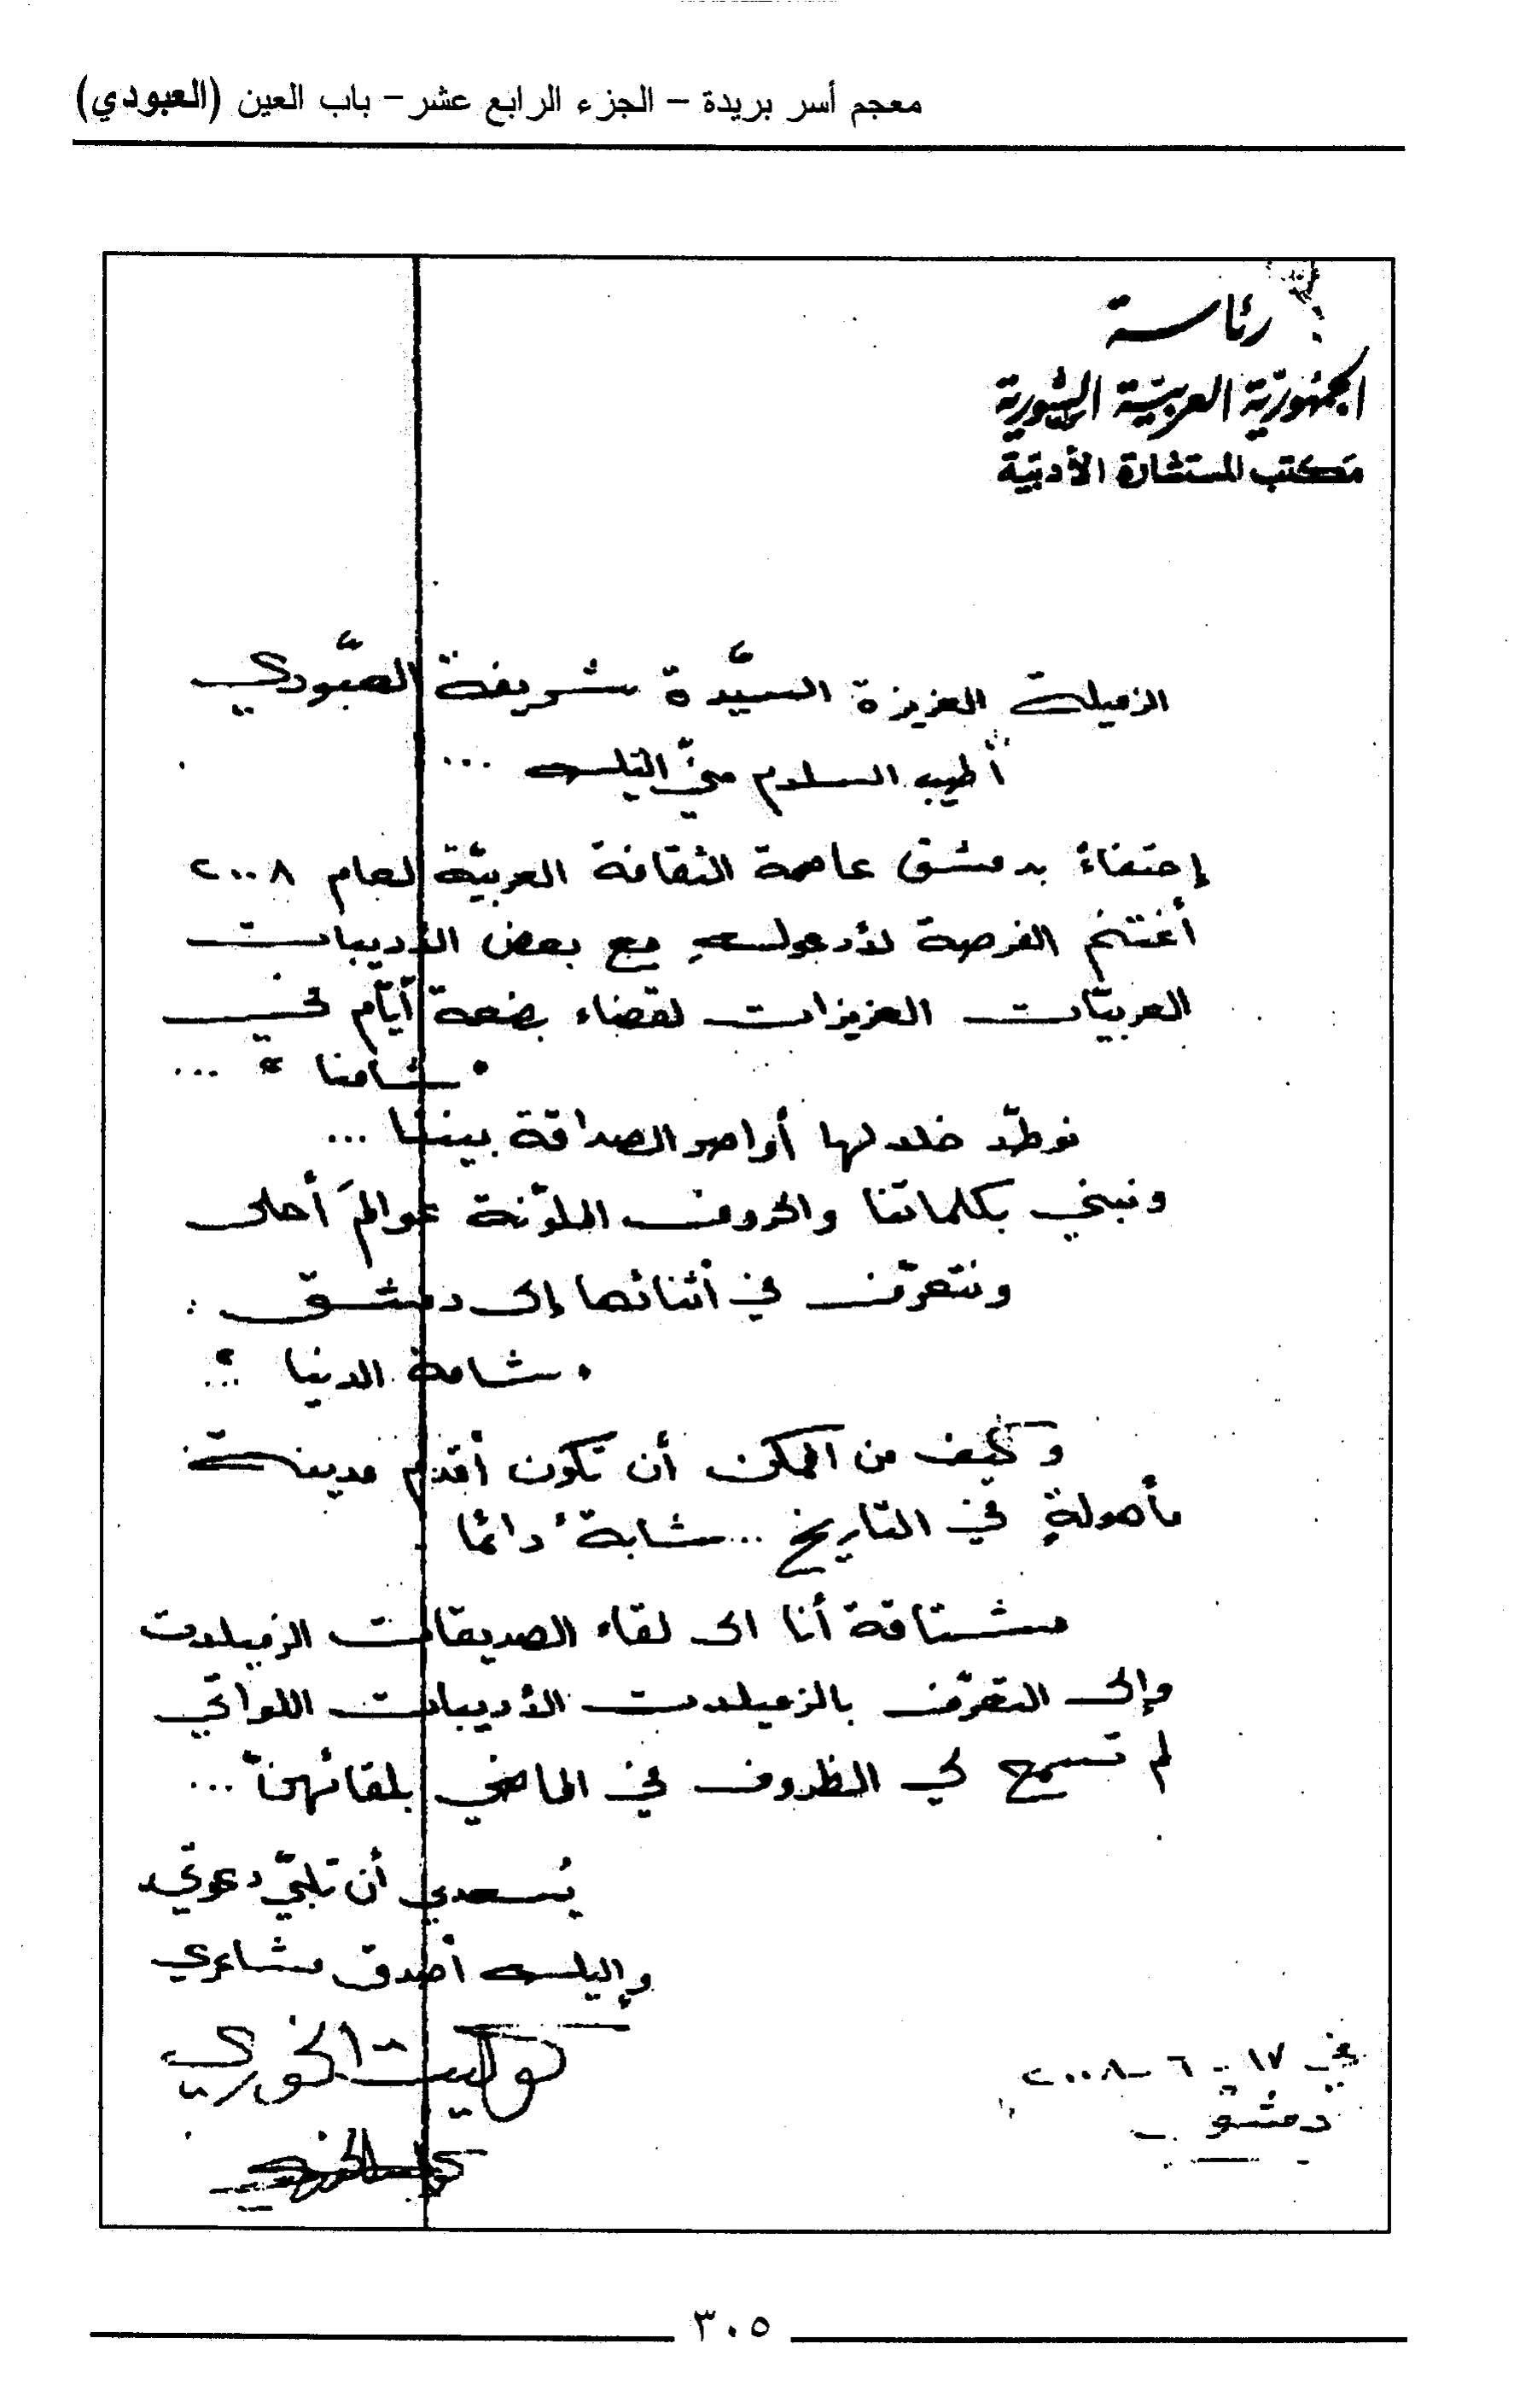 معجم أسر بريدة – الجزء الرابع عشر – باب العين (العبودي)
رئاسة
الجمهوريّة العربيّة السّورية
مكتب المستشارة الأدبيّة
الزميلة العزيزة السيّدة شريفة العبّودي
أطيب السلام منّي إليك ...
إحتفاءً بدمشق عاصمة الثقافة العربيّة لعام ٢٠٠٨
أغتنم الفرصة لأدعوكِ مع بعض الأديبات
العربيّات العزيزات لقضاء بضعة أيّام في
"شامنا" ...
نوطّد خلالها أواصر الصداقة بيننا ...
ونبني بكلماتنا والحروف الملوّنة عوالمَ أحلى
ونتعرّف في أثنائها إلى دمشق :
"شامة الدنيا" ...
وكيف من الممكن أن تكون أقدم مدينة
مأهولةٍ في التاريخ ... شابةً دائمًا
مشتاقة أنا الى لقاء الصديقات الزميلات
وإلى التعرّف بالزميلات الأديبات اللواتي
لم تسمح لي الظروف في الماضي بلقائهنّ ...
يُسعدني أن تلبّي دعوتي
وإليك أصدق مشاعري
كوليت الخوري
في ١٧ - ٦ - ٢٠٠٨
دمشق
٣٠٥